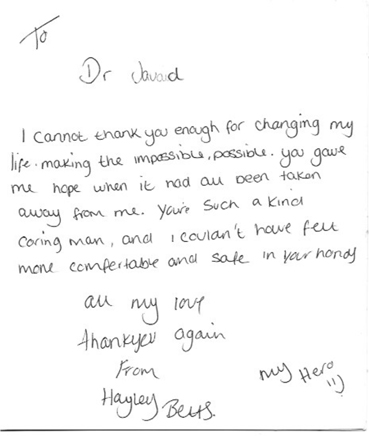 To
Dr Javaid
I cannot thank you enough for changing my
life. making the impossible, possible. you gave
me hope when it had all been taken
away from me. You're such a kind
caring man, and I couldn't have felt
more comfertable and safe in your hands
all my love
thankyou again
From
Hayley Betts.
my Hero